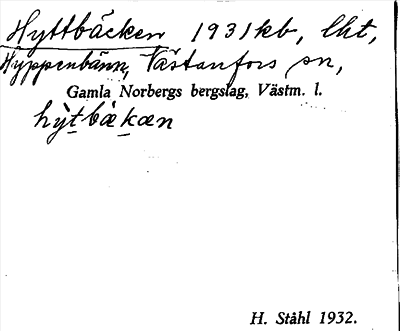 Hyttbäcken 1931kb, lht,
Hyppenbänn, Västanfors sn,
Gamla Norbergs bergslag, Västm. l.
hỳtbǽkæn
H. Ståhl 1932.